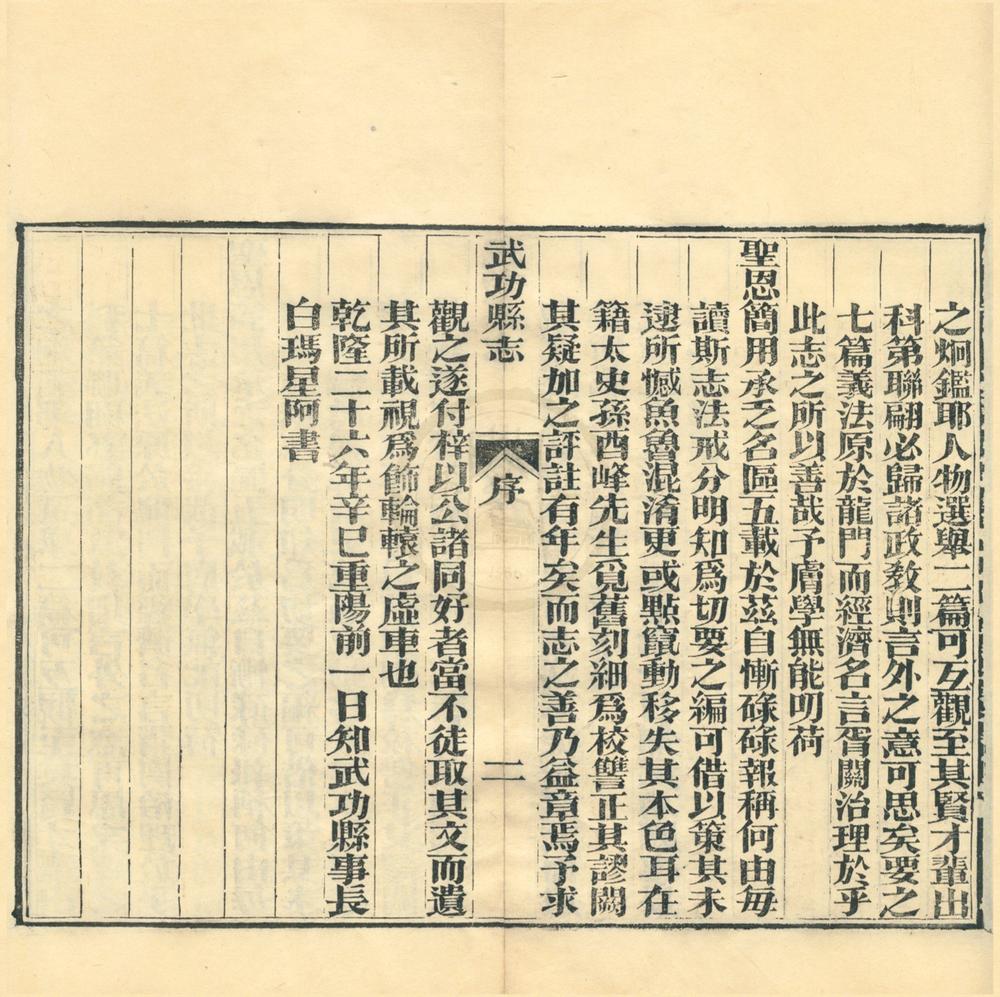 之炯鑑耶人物選舉二篇可互觀至其賢才輩出
科第聯翩必歸諸政敎則言外之意可思矣要之
七篇義法原於龍門而經濟名言胥關治理於乎
此志之所以善哉予膚學無能叨荷
聖恩簡用承乏名區五載於茲自慚碌碌報稱何由每
讀斯志法戒分明知爲切要之編可借以策其未
逮所憾魚魯混淆更或點竄動移失其本色耳在
籍太史孫酉峰先生覓舊刻細爲校讐正其謬闕
其疑加之評註有年矣而志之善乃益章焉予求
武功縣志
序
二
觀之遂付梓以公諸同好者當不徒取其文而遺
其所載視爲飾輪轅之虛車也
乾隆二十六年辛巳重陽前一日知武功縣事長
白瑪星阿書